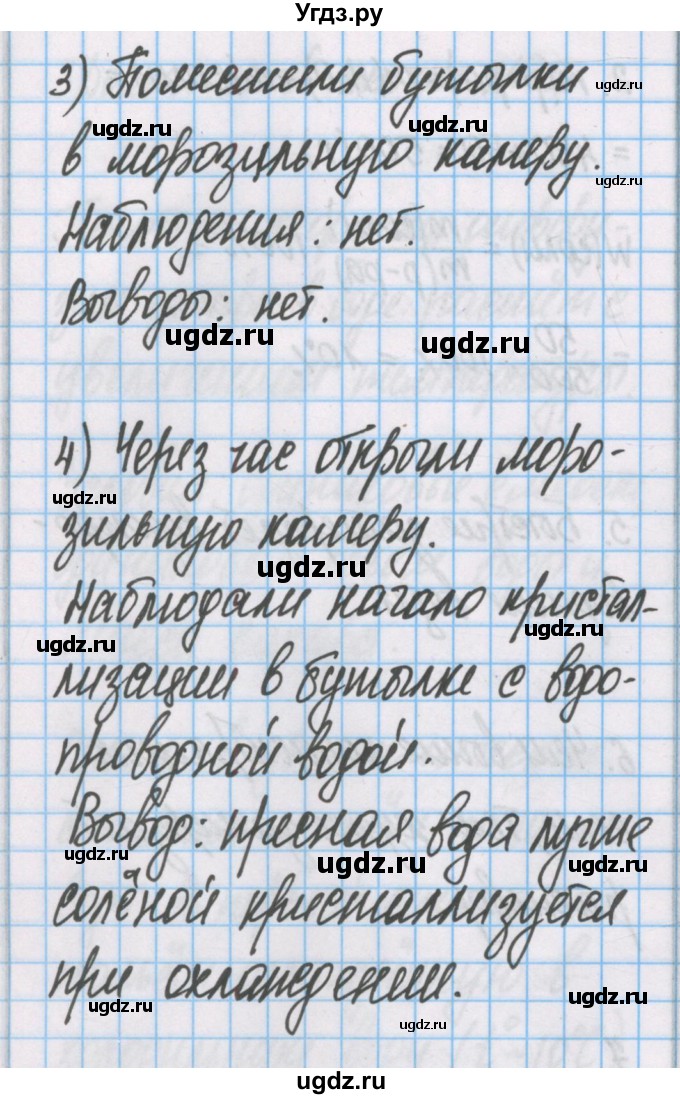 Угдз.ру
3) Поместили бутылки
ugdz.ru
ugdz.ru
ugdz.ru
в морозильную камеру.
ugdz.ru
Наблюдения: нет.
Выводы: нет.
ugdz.ru
ugdz.ru
4) Через час открыли моро-
ugdz.ru
зильную камеру.
ugdz.ru
Наблюдали начало кристал-
ugdz.ru
ugdz.ru
лизации в бутылке с водо-
проводной водой.
Вывод: пресная вода лучше
ugdz.ru
ugdz.ru
ugdz.ru
солёной кристаллизуется
при охлаждении.
ugdz.ru
ugdz.ru
ugdz.ru
ugdz.ru